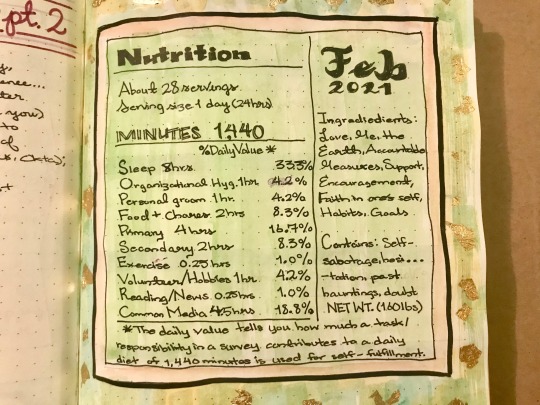 pt. 2
Nutrition
About 28 servings
Serving size 1 day (24hrs)
MINUTES 1,440
% Daily Value *
Sleep 8hrs. 33.3%
Organizational Hyg. 1hr. 4.2%
Personal groom 1hr. 4.2%
Food + Chores 2hrs 8.3%
Primary 4hrs 16.7%
Secondary 2hrs 8.3%
Exercise 0.25hrs 1.0%
Volunteer/Hobbies 1hr 4.2%
Reading/News 0.25hrs 1.0%
Common Media 4.5hrs 18.8%
*The daily value tells you how much a task/
responsibility in a survey contributes to a daily
diet of 1,440 minutes is used for self-fulfillment.
Feb
2021
Ingredients:
Love, Me, the
Earth, Accountable
Measures, Support,
Encouragement,
Faith in one's self,
Habits, Goals
Contains: Self-
sabotage, hesi...
-tation, past
hauntings, doubt
NET WT. (160lbs)